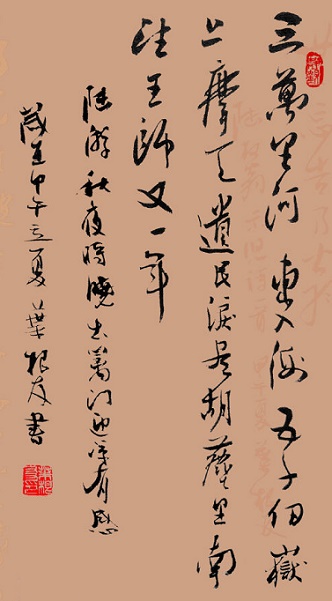 三萬里河東入海五千仞嶽
上摩天遺民淚盡胡塵里南
望王師又一年
陸游秋夜將曉出籬門迎涼有感
歲在甲午立夏葉根友書